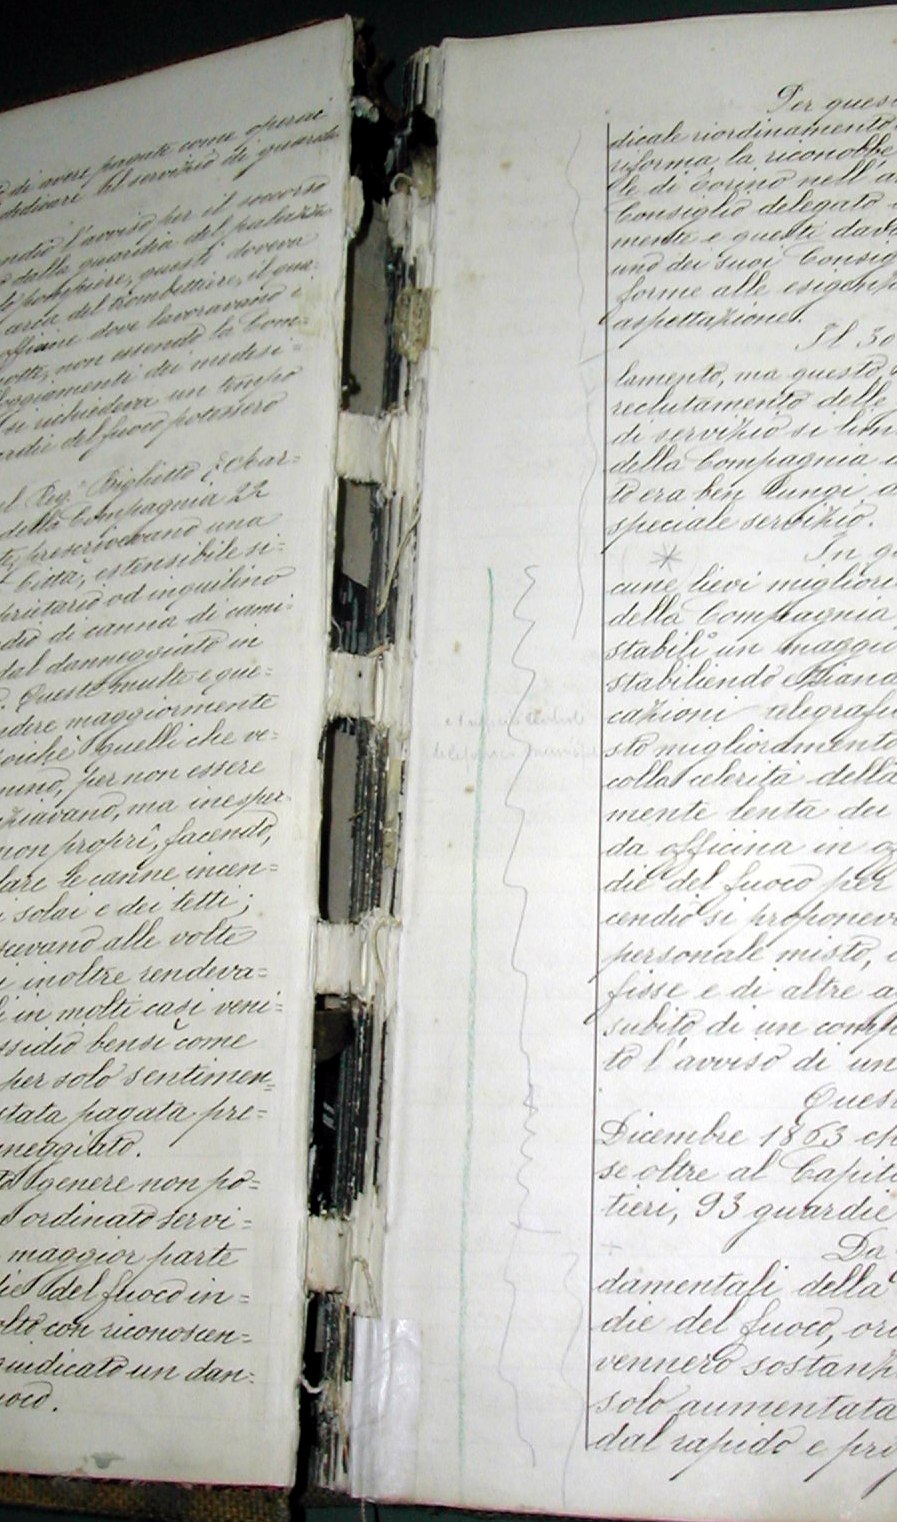 di avere pagate come operai
dedicari al servizio di guardie
ndio l'avviso per il soccorso
dalla guardia del palazzo
pompiere, questi doveva
del trombettiere, il qua-
officine dove lavoravano i
notte, non essendo la Com-
loggiamenti dei medesi-
si richiedeva un tempo
rdie del fuoco potessero
Biglietto
della Compagnia 22
prescrivevano una
Città, estensibile si-
prietario od inquilino
dio di canna di cami-
dal danneggiato in
Queste multe e que-
ndere maggiormente
oichè quelli che ve-
mino, per non essere
ziavano, ma inesper-
non proprî, facendo,
lare le canne incen-
i solai e dei tetti;
scevano alle volte
i inoltre rendeva-
li in molti casi veni-
ssidio bensì come
per solo sentimen-
stata pagata pre-
nneggiato.
genere non po-
ordinato servi-
maggior parte
del fuoco in-
olto con riconoscen-
giudicato un dan-
uoco.
Per ques
dicale riordinamento
riforma la riconobbe
le di Torino nell'a
Consiglio delegato
mente e questi dav
uno dei suoi Consig
forme alle esigenz
aspettazione.
Il 30
lamento, ma questo,
reclutamento delle
di servizio si lim
della Compagnia
to era ben lungi
speciale servizio.
In q
cune lievi migliori
della Compagnia
stabilì un maggio
stabiliendo
cazioni telegrafi
sto miglioramento
colla celerità della
mente lenta dei
da officina in o
die del fuoco per
cendio si proponev
personale misto,
fisse e di altre a
subito, di un comp
to l'avviso di un
Ques
Dicembre 1863 ch
se oltre al Capit
tieri, 93 guardie
Da
damentali della
die del fuoco, or
vennero sostanz
solo aumentata
dal rapido e pro